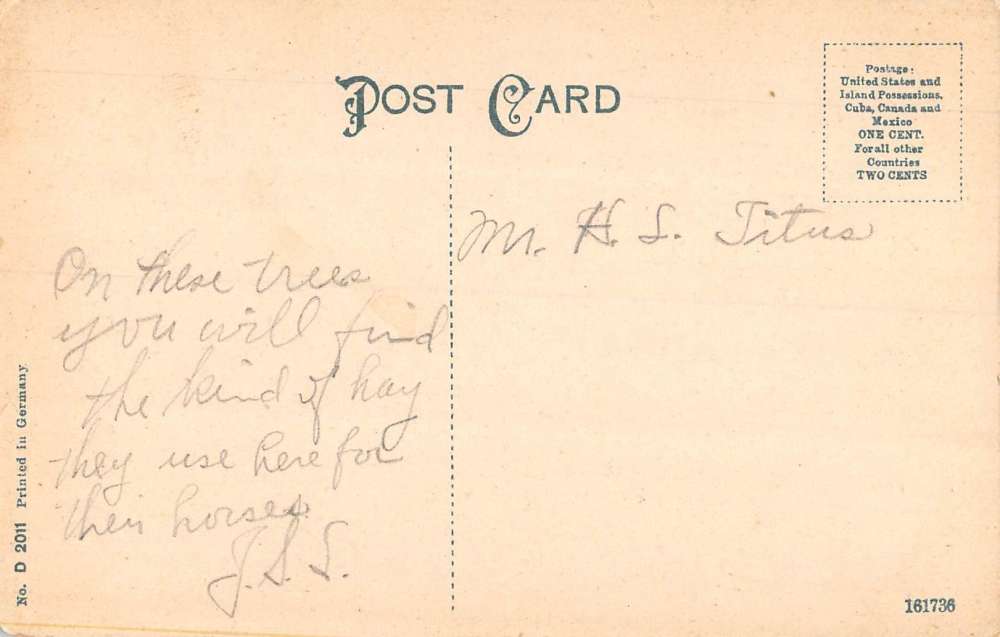 POST CARD
Postage:
United States and
Island Possessions,
Cuba, Canada and
Mexico
ONE CENT.
For all other
Countries
TWO CENTS
Mr. H. S. Titus
On these trees
you will find
the kind of hay
they use here for
their horses.
J.S.S.
No. D 2011 Printed in Germany
161736